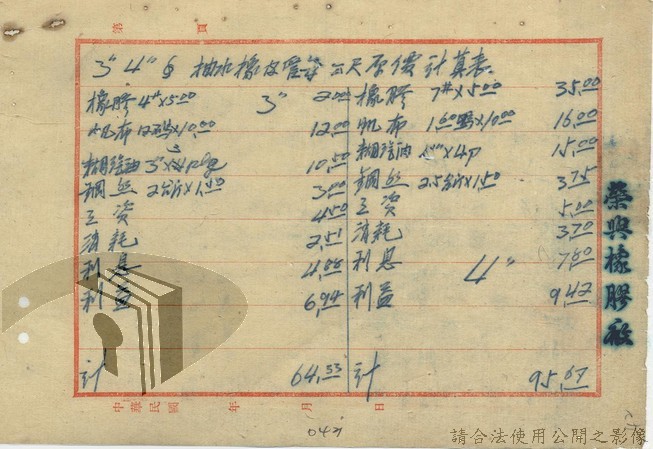 第 頁
3" 4" ∮ 抽水橡皮管每尺原價計算表
3"
橡膠 4#×5.00 20.00
帆布 1.2碼×10.00 12.00
糊汽油 3"×4p 10.50
鋼絲 2台斤×1.50 3.00
工資 4.50
消耗 2.51
利息 4.88
利益 6.94
計 64.53
4"
橡膠 7#×5.00 35.00
帆布 1.60碼×10.00 16.00
糊汽油 ×4p 15.00
鋼絲 2.5台斤×1.50 3.75
工資 5.00
消耗 3.70
利息 7.80
利益 9.42
計 95.67
中華民國 年 月 日
榮興橡膠廠
042
請合法使用公開之影像